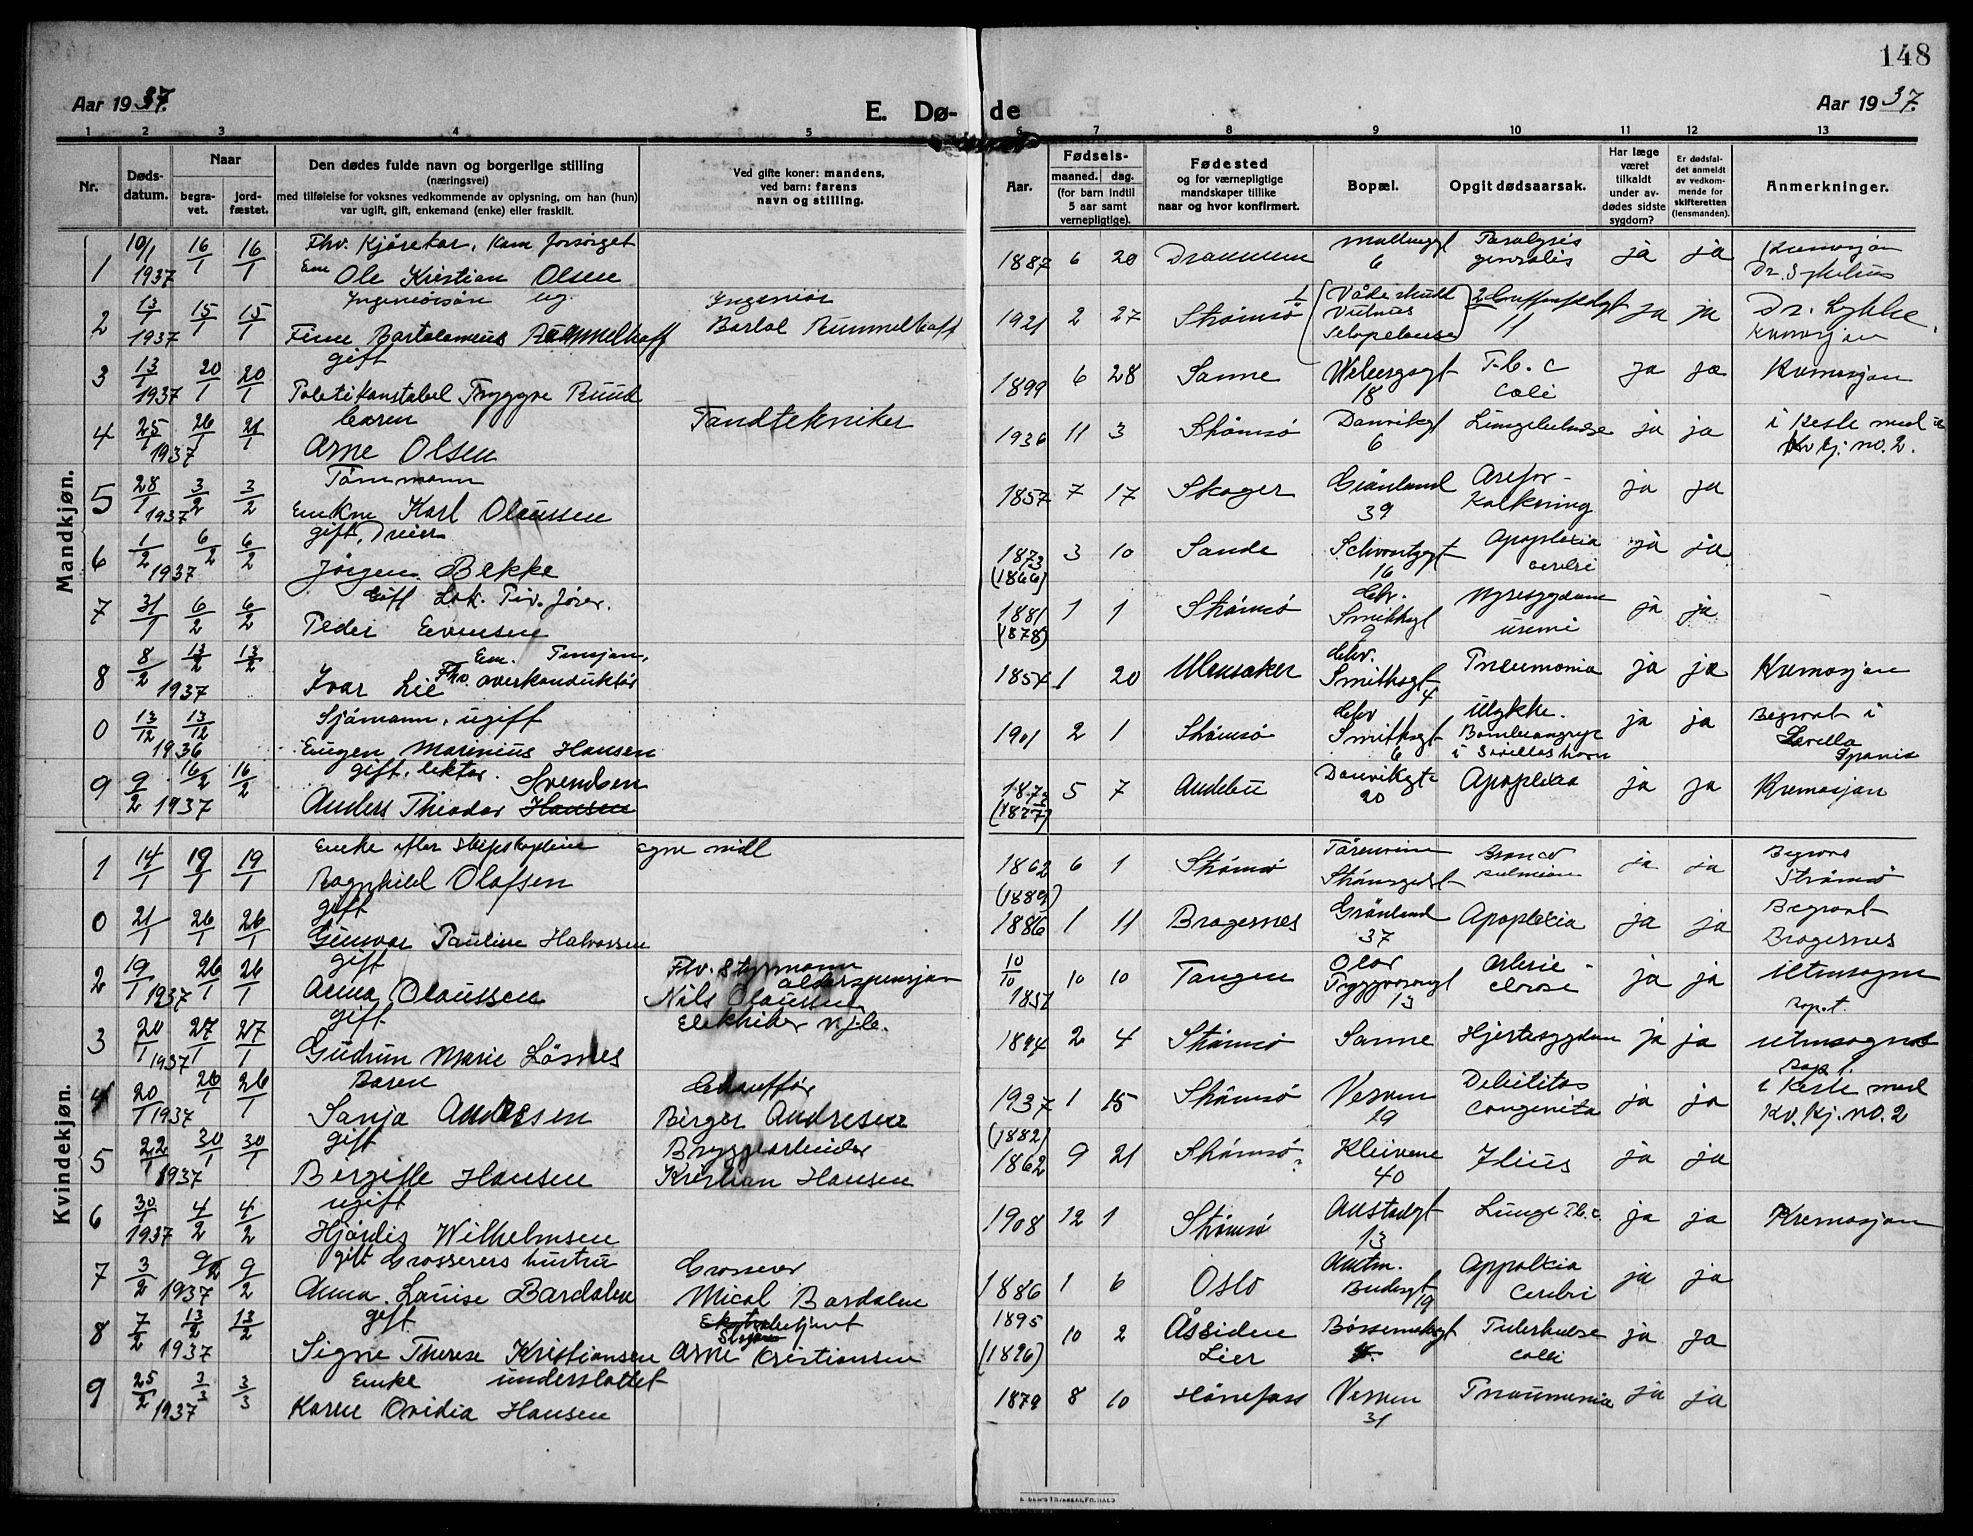 148
Aar 1937.
E. Dø-
de
Aar 1937.
1 2 3 4 5 6 7 8 9 10 11 12 13
Nr.
Døds-
datum.
Naar
begra-
vet.
jord-
fæstet.
Den dødes fulde navn og borgerlige stilling
(næringsvei)
med tilføielse for voksnes vedkommende av oplysning, om han (hun)
var ugift, gift, enkemand (enke) eller fraskilt.
Ved gifte koner: mandens,
ved barn: farens
navn og stilling.
Aar.
Fødsels-
maaned. dag.
(for barn indtil
5 aar samt
vernepligtige).
Fødested
og for værnepligtige
mandskaper tillike
naar og hvor konfirmert.
Bopæl.
Opgit dødsaarsak.
Har læge
været
tilkaldt
under av-
dødes sidste
sygdom?
Er dødsfal-
det anmeldt
av vedkom-
mende for
skifteretten
(lensmanden).
Anmerkninger.
Mandkjøn.
1 10/1 1937 16/1 16/1 Fhv. Kjøretar, Kom forsørget
Em Ole Kristian Olsen 1887 6 20 Drammen 6 Paralysis generalis ja ja Kremasjon
2 13/1 1937 15/1 15/1 Ingeniørsøn ug. Ingeniør
Finn Bartolomeus Rummelhoff Bartol Rummelhoff 1921 2 27 Strømsø 1/ Vådeskudd Vulnus Sclopetarie 2/ 11 ja ja Dr. Lykke. Kremasjon
3 13/1 1937 20/1 20/1 gift
Politikonstabel Tryggve Ruud 1899 6 28 Sanne 18 T.b.c coli ja ja Kremasjon
4 25/1 1937 26/1 21/1 barn Tandtekniker
Arne Olsen 1936 11 3 Strømsø Danvikgt 6 ja ja i Kiste med Kv kj. no. 2.
5 28/1 1937 3/2 3/2 Tømmmann
Enkm Karl Olaussen 1857 7 17 Skoger Grønland 39 Arefor-kalkning ja ja
6 1/2 1937 6/2 6/2 gift, Dreier
Jørgen Bekke 1873 (1866) 3 10 Sande Schwartzgt 16 Apoplexia cerebri ja ja
7 31/1 6/2 6/2 Gift Lok.
Peder Evensen 1881 (1878) 1 1 Strømsø Chr. Smithsgt 9 Nyresygdom uremi ja ja
8 8/2 1937 13/2 13/2 Em. Pensjon.
Ivar Lie Fhv. overkonduktør 1854 1 20 Ulensaker Chr. Smithsgt 4 Pneumonia ja ja Kremasjon
0 13/12 1936 13/12 Sjømann, ugift
Eugen Marinius Hansen 1901 2 1 Strømsø Chr Smithsgt 6 Ulykke. Bombeangrep i Sevillas havn ja ja Begravet i Sevilla Spania
9 9/2 1937 16/2 16/2 gift, lektor. Svendsen
Anders Theodor Hansen (1877) 5 7 Andebu Danvikgt 20 Apoplexia ja ja Kremasjon
Kvindekjøn.
1 14/1 19/1 19/1 Enke efter Skipskaptein egne midl
Ragnhild Olafsen 1862 6 1 Strømsø Tårnveien ja ja Begravs Strømsø
0 21/1 26/1 26/1 gift
Gunvor Pauline Halvorsen (1889) 1886 1 11 Bragernes Grønland 37 Apoplexia ja ja Begravet Bragernes
2 19/1 1937 26/1 26/1 gift Fhv. Styrmann alderspensjon
Anna Olaussen Nils Olaussen 10/10 1851 10 10 Tangen Olav Tryggvasonsgt 13 Arterie-clerose ja ja Utensogns
3 20/1 1937 27/1 27/1 gift
Gudrun Marie Løsnes 1894 2 4 Strømsø Sanne Hjertesygdom ja ja utensogns
4 20/1 1937 26/1 26/1 Barn Chauffør
Sanja Andresen Birger Andresen 1937 1 15 Strømsø Verven 29 Debilitas congenita ja ja i Kiste med Kv. kj. no. 2
5 22/1 1937 30/1 30/1 gift Bryggearbeider
Bergitte Hansen Kristian Hansen (1882) 1862 9 21 Strømsø? Kleivene 40 Ilius ja ja
6 30/1 1937 4/2 4/2 ugift
Hjørdis Wilhelmsen 1908 12 1 Strømsø Austadgt 13 Lunge Tb.c. ja ja Kremasjon
7 3/2 1937 9/2 9/2 gift Grosserers hustru Grosserer
Anna Louise Bardalen Mical Bardalen 1886 1 6 Oslo Amtm. 19 Appolexia Cerebri ja ja
8 7/2 1937 13/2 13/2 gift
Signe Therese Kristiansen Arne Kristiansen 1895 (1896) 10 2 Åssiden Lier coli ja ja
9 25/2 1937 3/3 3/3 Enke understøttet
Karen Ovidia Hansen 1879 8 10 Hønefoss Verven 31 Pnaumenia ja ja